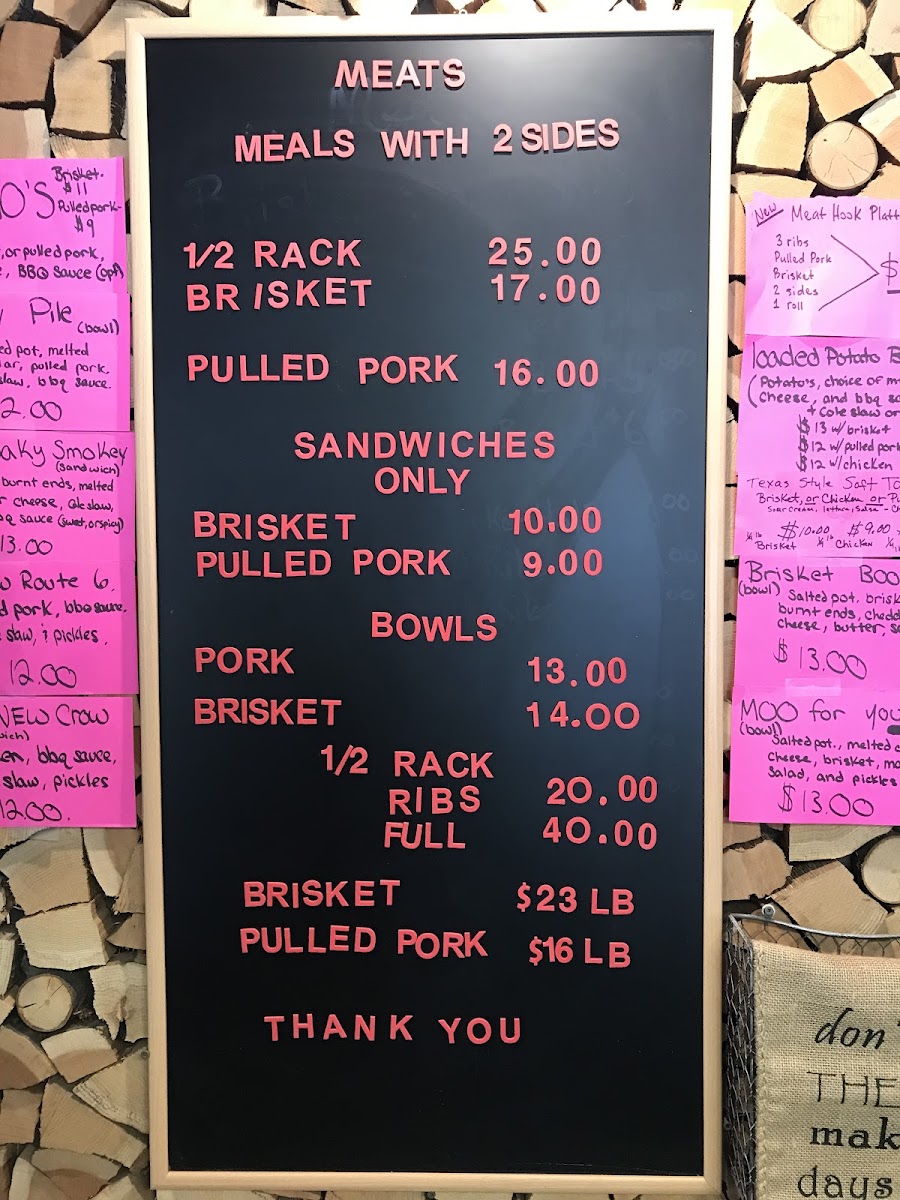 MEATS
MEALS WITH 2 SIDES
1/2 RACK 25.00
BRISKET 17.00
PULLED PORK 16.00
SANDWICHES
ONLY
BRISKET 10.00
PULLED PORK 9.00
BOWLS
PORK 13.00
BRISKET 14.00
1/2 RACK
RIBS 20.00
FULL 40.00
BRISKET $23 LB
PULLED PORK $16 LB
THANK YOU
Brisket-
$11
Pulled pork-
$9
, or pulled pork,
BBQ Sauce (opt)
Pile
(bowl)
pot, melted
pulled pork,
slaw, bbq sauce.
2.00
Smokey
(sandwich)
burnt ends, melted
cheese, Cole slaw,
sauce (sweet, or spicy)
13.00
Route 6
pork, bbq sauce,
slaw, & pickles.
12.00
NEW Crow
bbq sauce,
slaw, pickles
12.00.
New Meat Hook
3 ribs
Pulled Pork
Brisket
2 sides
1 roll
$
loaded Potato
(Potato's, choice of
cheese, and bbq
+ Cole slaw or
$13 w/ brisket
$12 w/ pulled pork
$12 w/ chicken
Texas Style Soft
Brisket, or Chicken or
Sour Cream, lettuce, Salsa -
$10.00 $9.00
1/4 lb Brisket 1/4 lb Chicken
Brisket
(bowl) Salted pot,
burnt ends,
cheese, butter,
$13.00
MOO for you
(bowl)
Salted pot., melted
Cheese, brisket,
Salad, and pickles
$13.00
don'
THE
mak
days